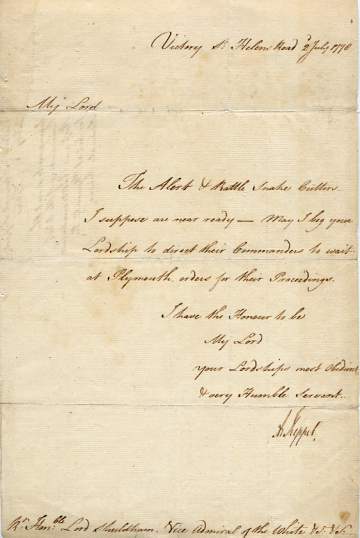 Victory St Helens Road 2d July 1778
My Lord
The Alert & Rattle Snake Cutters
I suppose are near ready — May I beg your
Lordship to direct their Commanders to wait
at Plymouth orders for their Proceedings.
I have the Honour to be
My Lord
your Lordships most Obedient
& very Humble Servant
A Keppel
Rt Honble Lord Shuldham. Vice Admiral of the White &c &c